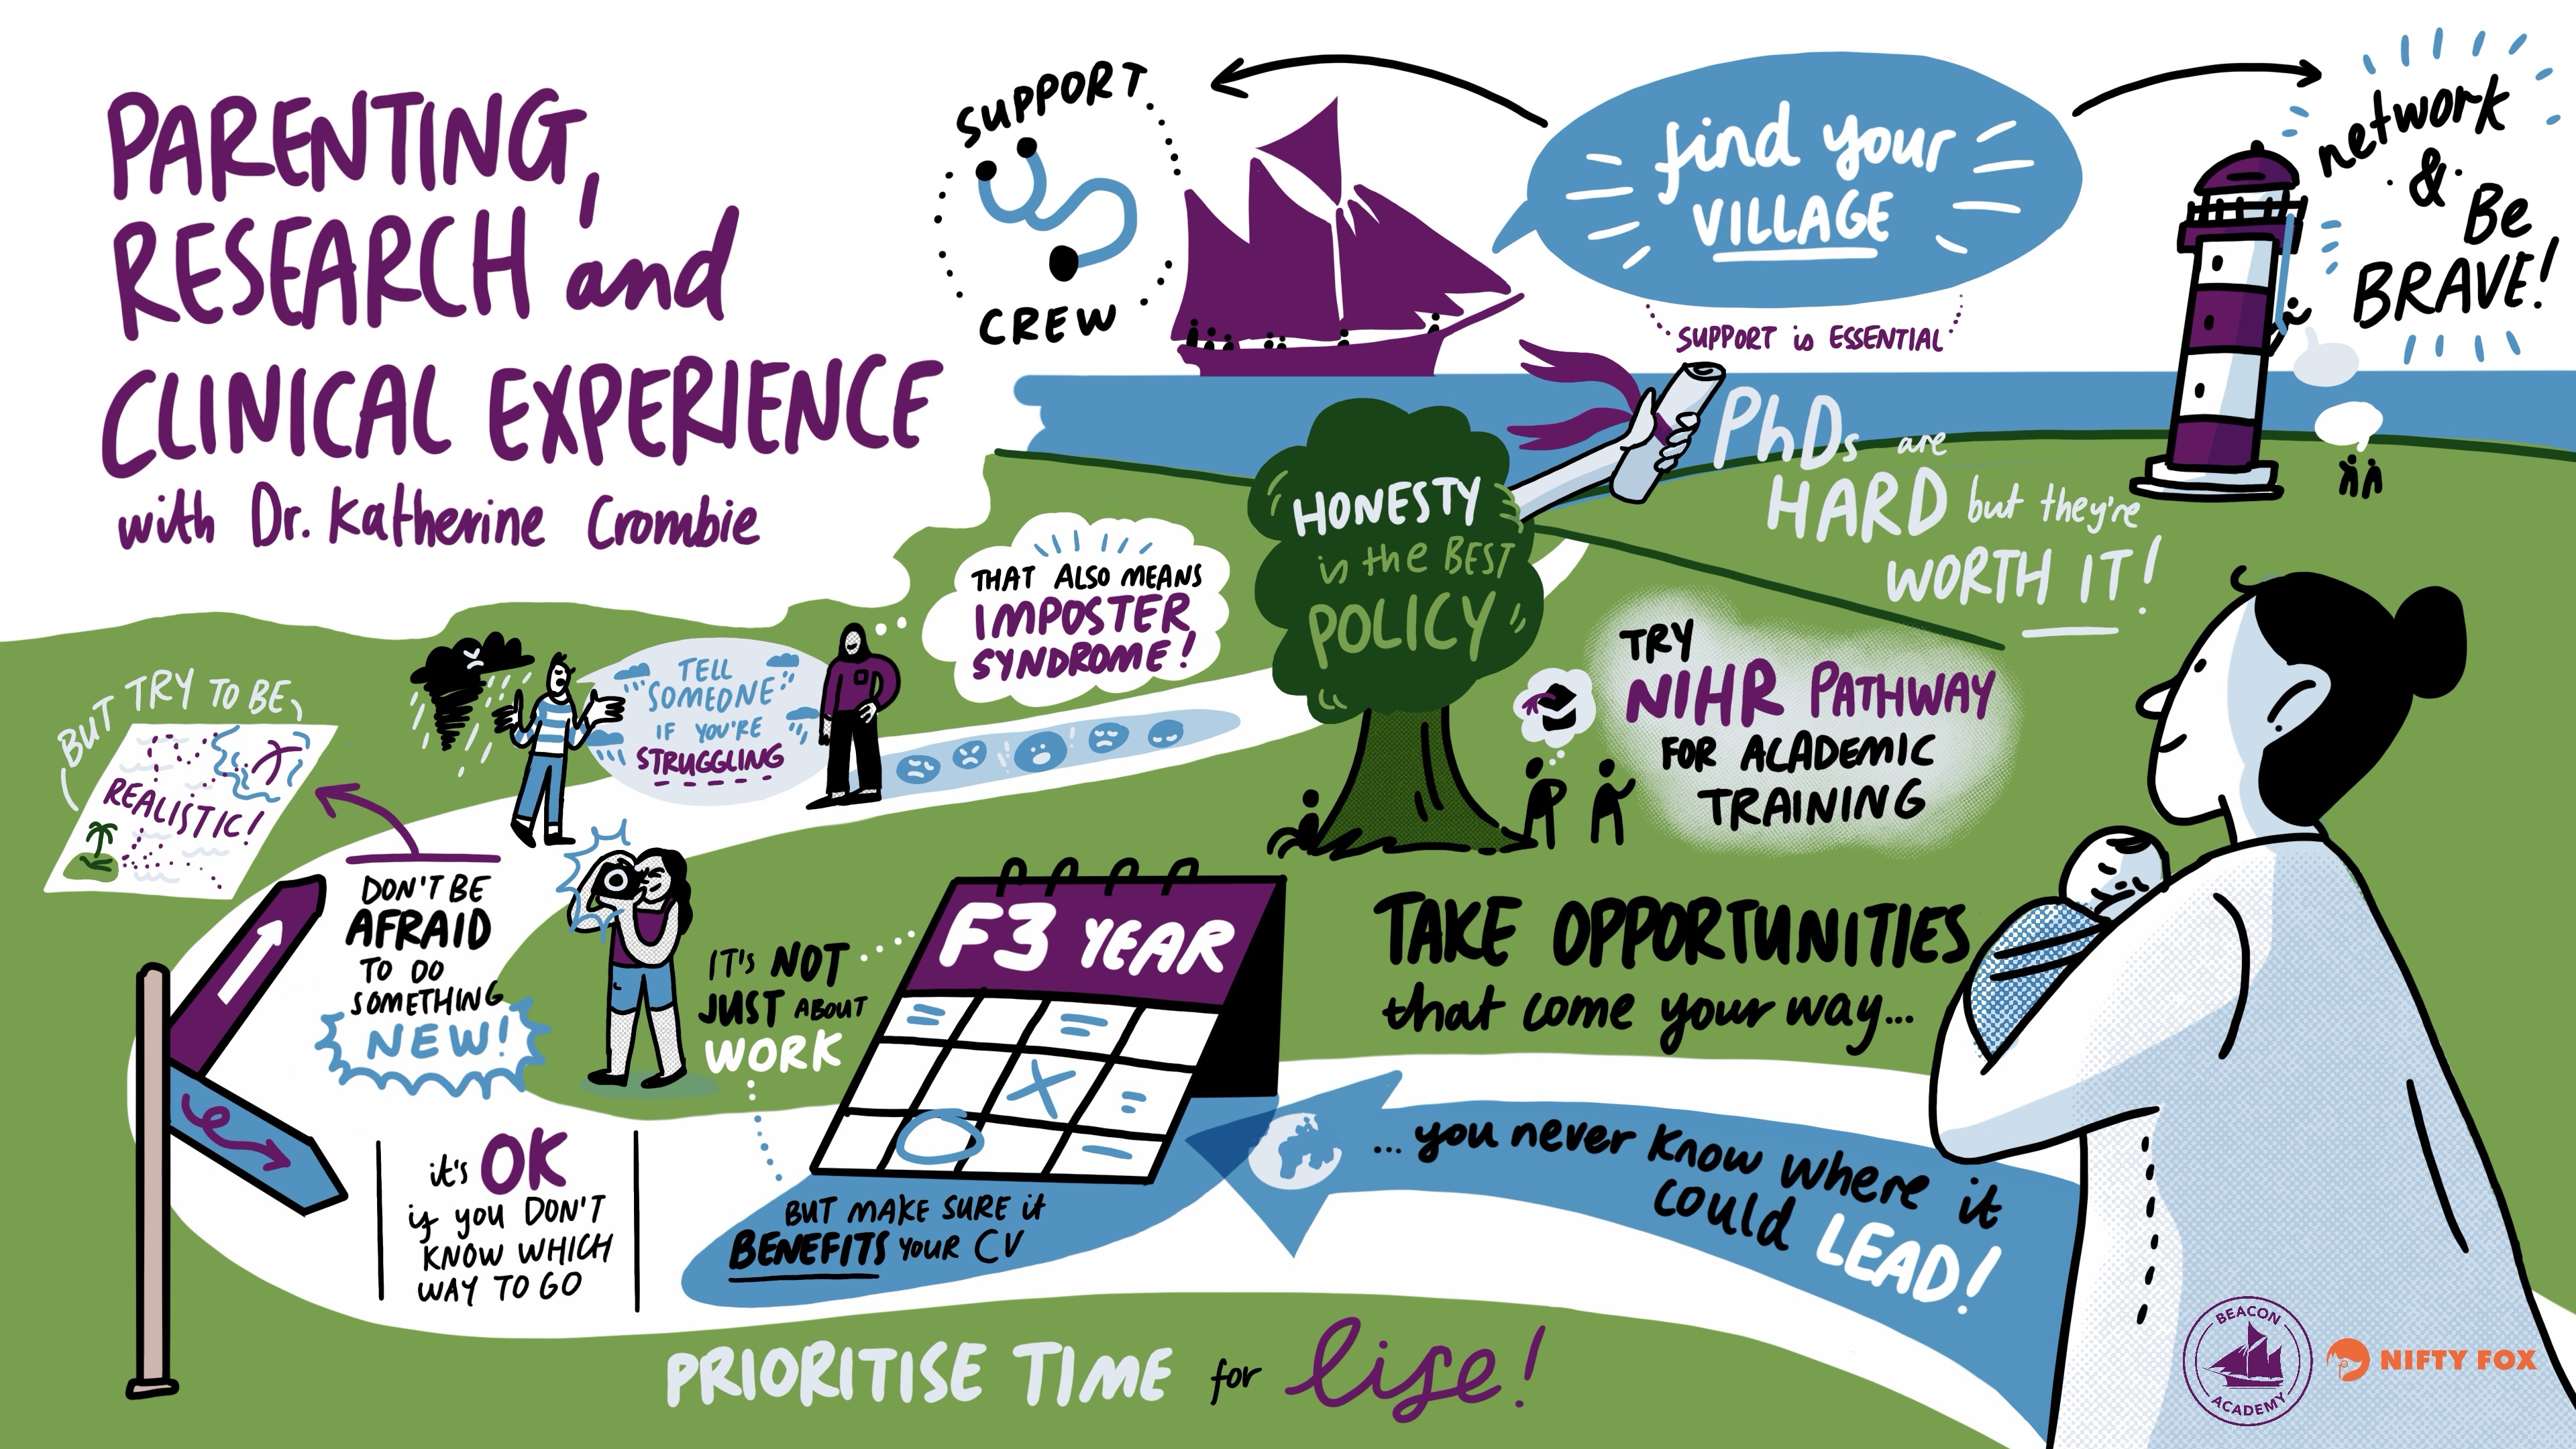 PARENTING,
RESEARCH and
CLINICAL EXPERIENCE
with Dr. Katherine Crombie
SUPPORT
CREW
find your
VILLAGE
SUPPORT is ESSENTIAL
network
&
Be
BRAVE!
PhDs are
HARD but they're
WORTH IT!
HONESTY
is the BEST
POLICY
THAT ALSO MEANS
IMPOSTER
SYNDROME!
TELL
SOMEONE
IF YOU'RE
STRUGGLING
BUT TRY TO BE
REALISTIC!
DON'T BE
AFRAID
TO DO
SOMETHING
NEW!
it's OK
if you DON'T
KNOW WHICH
WAY TO GO
IT'S NOT
JUST ABOUT
WORK
F3 YEAR
BUT MAKE SURE it
BENEFITS YOUR CV
TRY
NIHR PATHWAY
FOR ACADEMIC
TRAINING
TAKE OPPORTUNITIES
that come your way...
...you never know where it
could LEAD!
PRIORITISE TIME for life!
BEACON
ACADEMY
NIFTY FOX